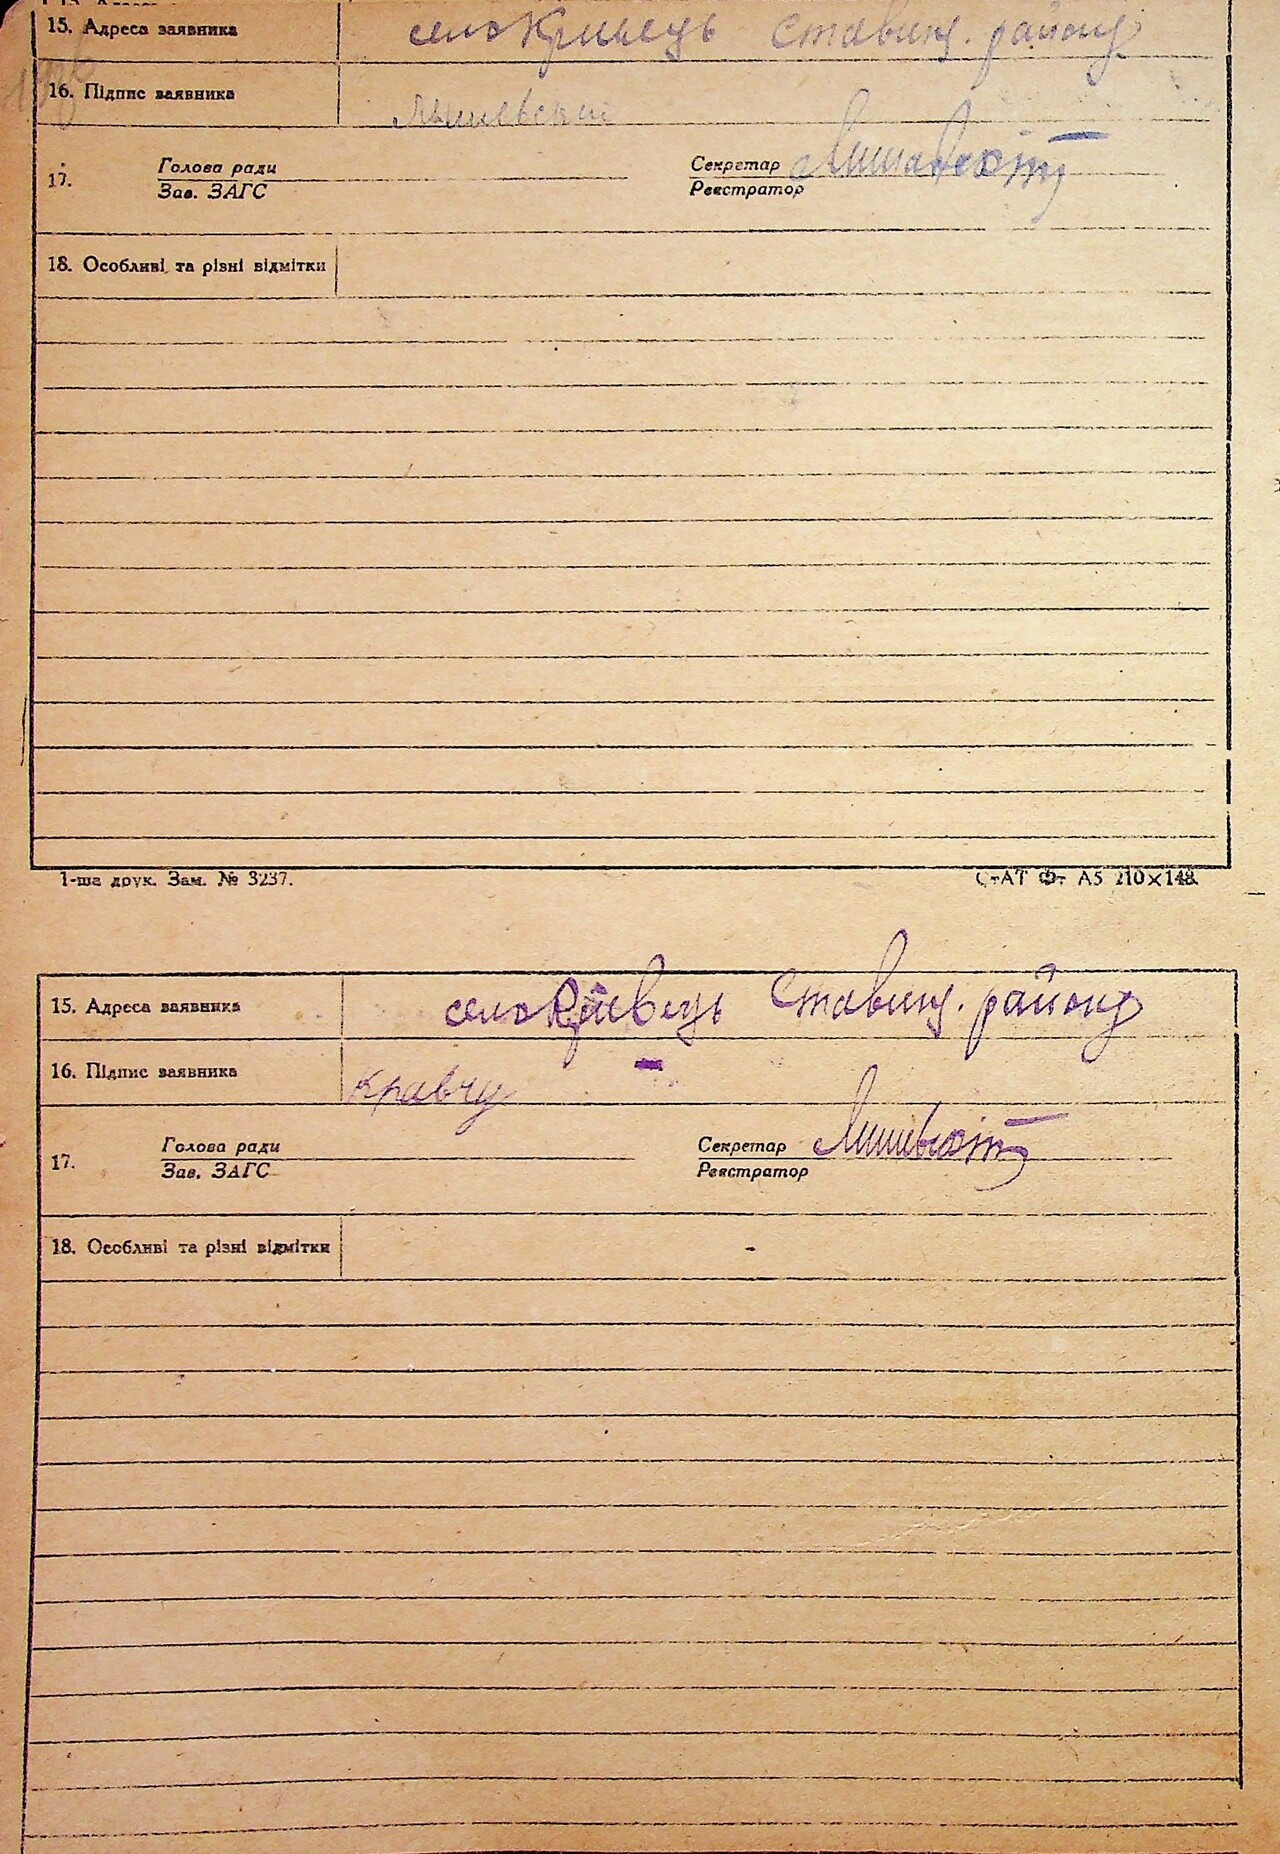 15. Адреса заявника село Кривець Ставищ. району
16. Підпис заявника
17. Голова ради Секретар
Зав. ЗАГС Реєстратор
18. Особливі та різні відмітки
1-ша друк. Зам. № 3237. СтАТ Фт А5 210×148.
15. Адреса заявника село Кривець Ставищ. району
16. Підпис заявника Кравчу
17. Голова ради Секретар
Зав. ЗАГС Реєстратор
18. Особливі та різні відмітки